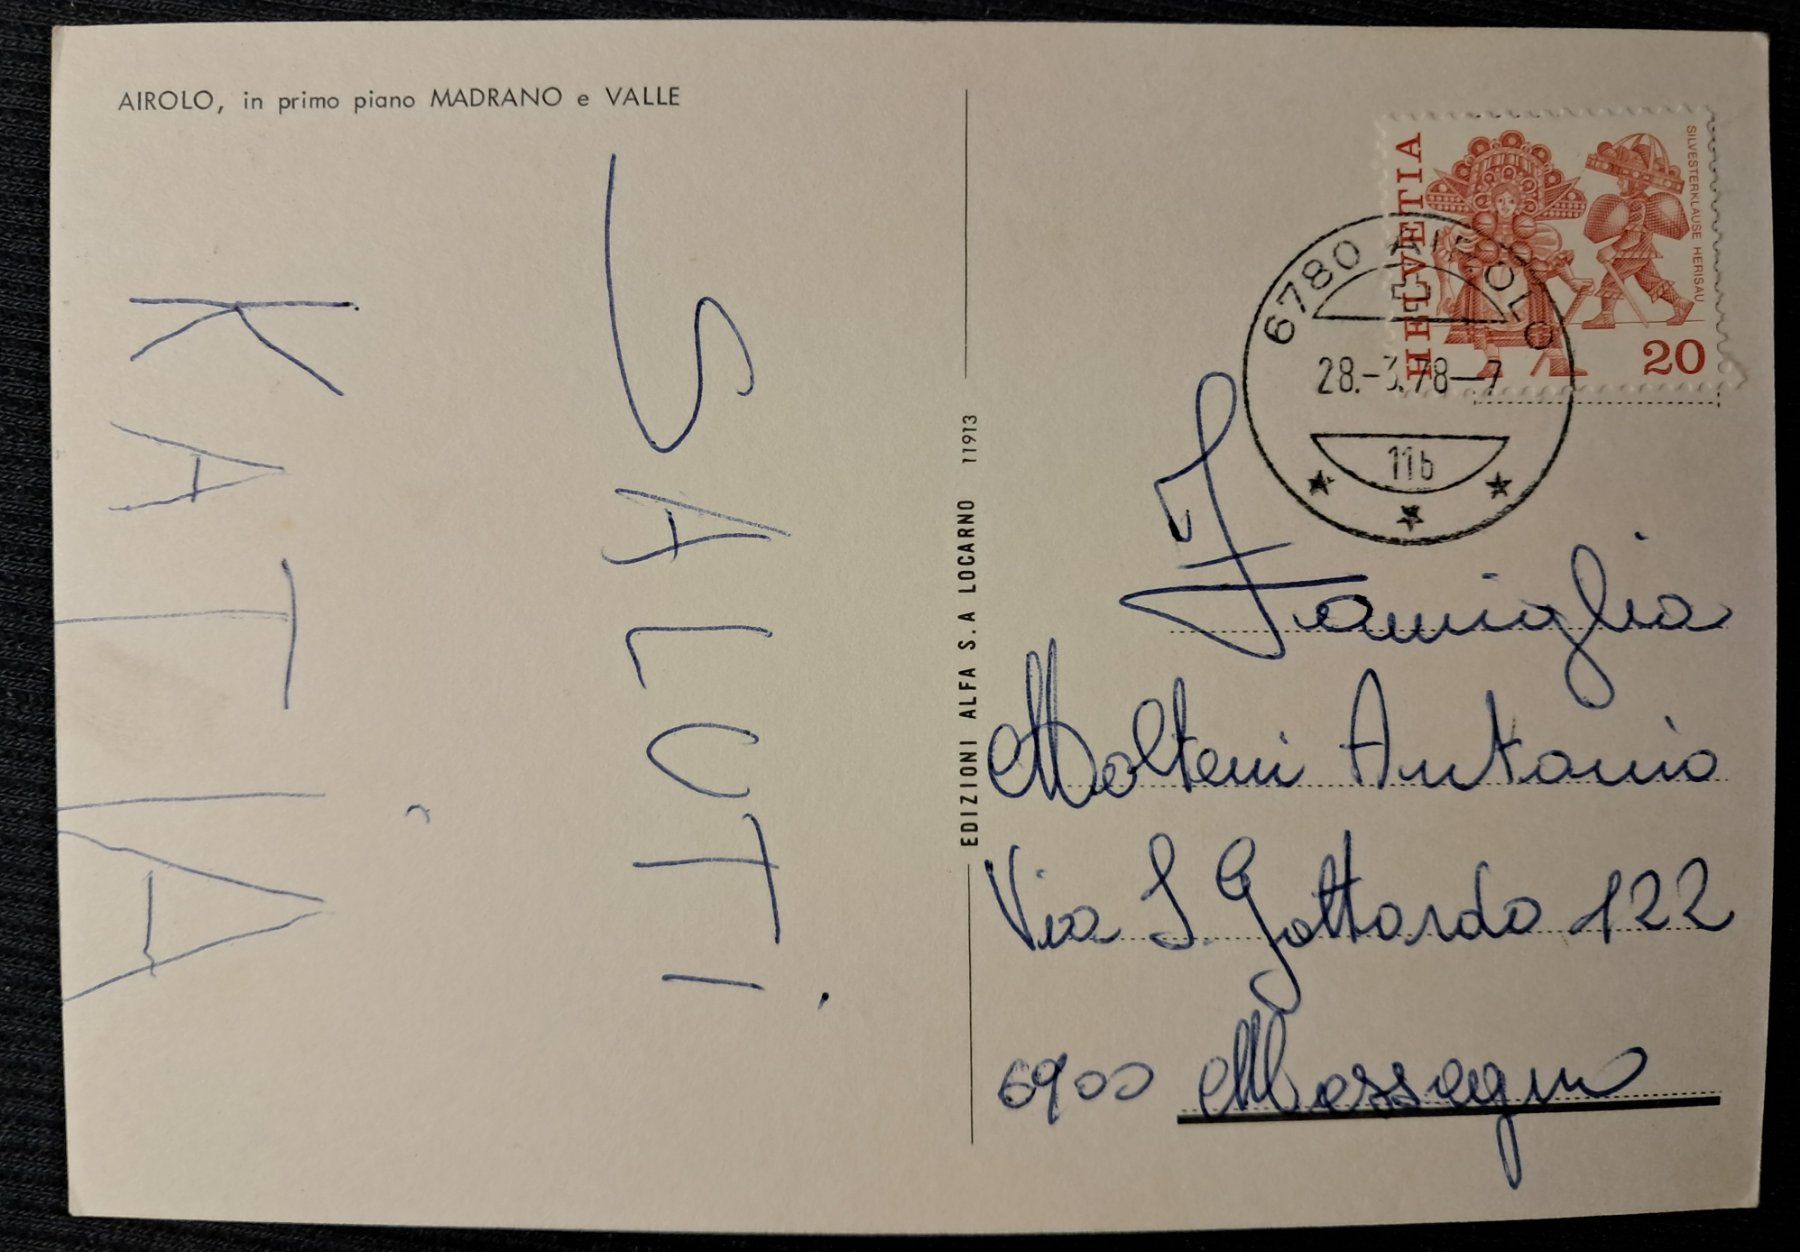 AIROLO, in primo piano MADRANO e VALLE
SALUTI
KATIA
EDIZIONI ALFA S.A LOCARNO 11913
HELVETIA
SILVESTERKLÄUSE HERISAU
20
6780 AIROLO
28.-3.78-7
11b
Famiglia
Molteni Antonio
Via S. Gottardo 122
6900 Massagno